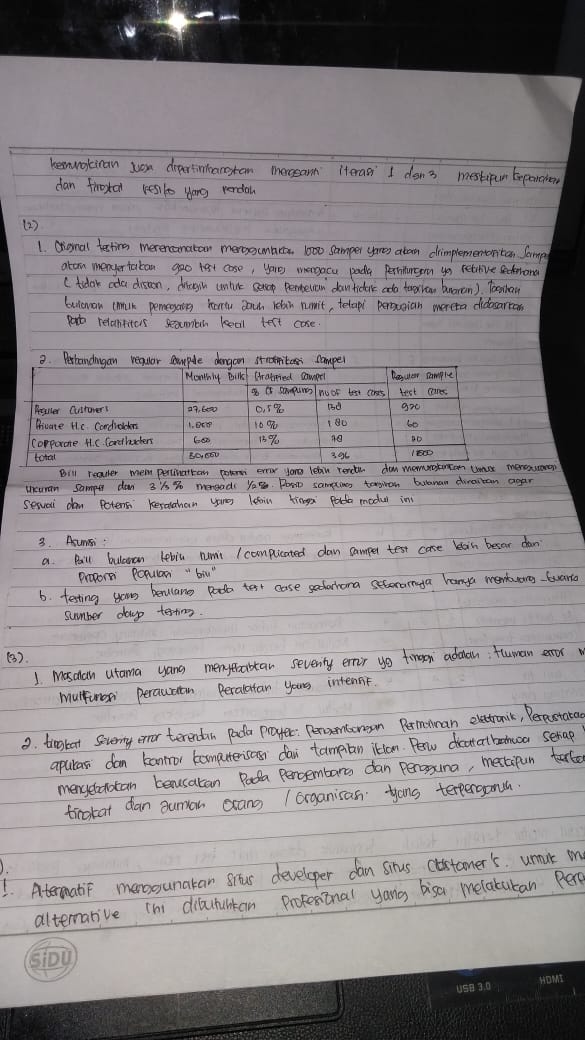 kemungkinan juga dipertimbangkan mengganti iterasi 1 dan 3 meskipun keparahan
dan tingkat resiko yang rendah
(2)
1. Original testing merencanakan menggunakan 1000 sampel yang akan diimplementasikan. Sampel
akan menyertakan 920 test case, yang mengacu pada perhitungan yg relative sederhana
(tidak ada diskon, ditagih untuk setiap pembelian dan tidak ada tagihan bulanan). Tagihan
bulanan untuk pemegang kartu jauh lebih rumit, tetapi pengujian mereka didasarkan
pada relatif sejumlah kecil test case.
2. Perbandingan regular sample dengan stratifikasi sampel
Monthly Bills Stratified sampel Regular sample
% of sampling nu of test cases test cases
Reguler Custumers 27,600 0,5% 920
Private H.c. Cardholders 1,800 10% 180 60
Corporate H.C. Cardholders 600 13% 78 20
total 30,000 396 1000
Bill reguler memperlihatkan potensi error yang lebih rendah dan memungkinkan untuk mengurangi
ukuran sampel dari 3 1/3 % menjadi 1/2 %. Rasio sampling tagihan bulanan dinaikan agar
sesuai dgn potensi kesalahan yang lebih tinggi pada modul ini
3. Asumsi :
a. Bill bulanan lebih rumit / complicated dan sampel test case lebih besar dari
proporsi populasi "bill"
b. testing yang berulang pada test case sederhana sebenarnya hanya membuang-buang
sumber daya testing.
(3).
1. Masalah utama yang menyebabkan severity error yg tinggi adalah : Human error
Multfungsi perawatan peralatan yang intensif.
2. tingkat Severity error terendah pada proyek: Pengembangan Permainan elektronik, Perpustakaa
aplikasi dan kontrol komputerisasi dari tampilan iklan. Perlu dicatat bahwa setiap
menyebabkan kerusakan pada pengembang dan pengguna, meskipun
tingkat dan Jumlah orang / organisasi yang terpengaruh.
1. Alternatif menggunakan situs developer dan situs Costomer's. untuk
alternative ini dibutuhkan Profesional yang bisa melakukan
SiDU
USB 3.0
HDMI